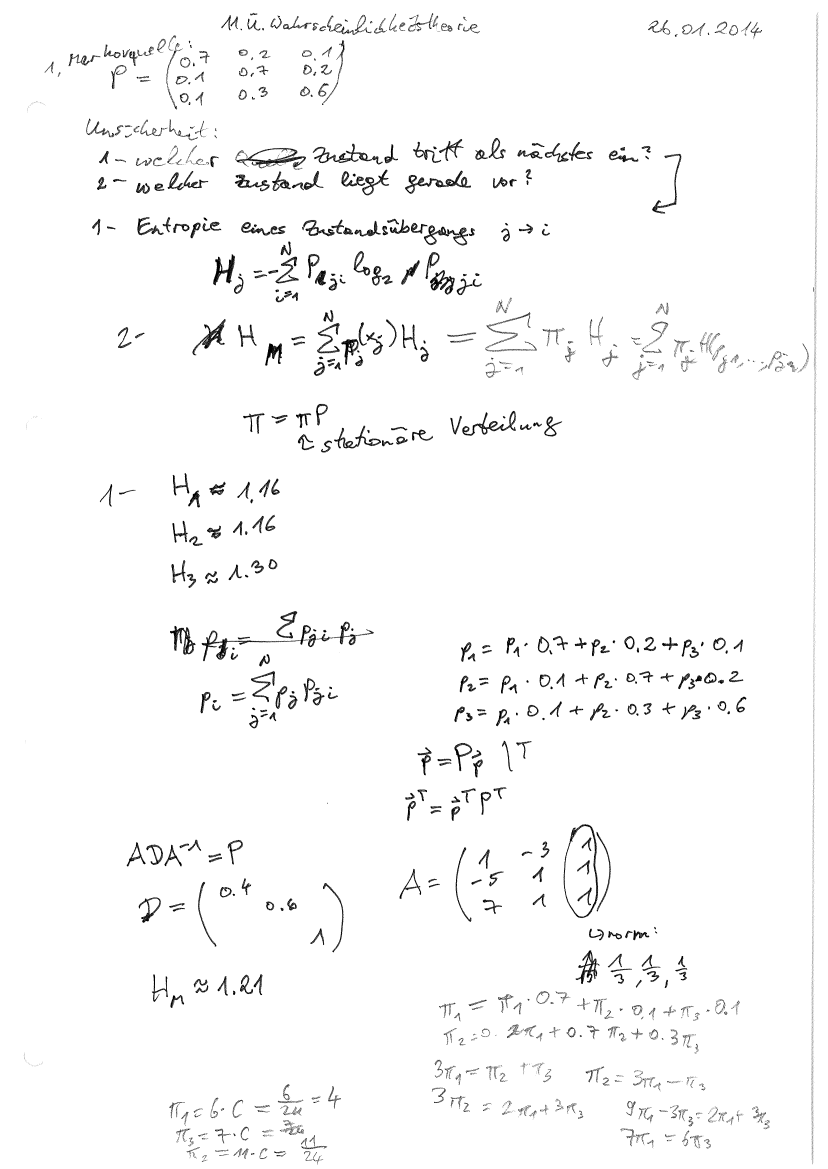 11. Ü. Wahrscheinlichkeitstheorie 26.01.2014
1, Markovquelle:
P = (0.7 0,2 0.1
0.1 0,7 0,2
0,1 0.3 0.6)
Unsicherheit:
1 - welcher Zustand tritt als nächstes ein?
2 - welcher Zustand liegt gerade vor?
1 - Entropie eines Zustandsübergangs j → i
H_j = -∑_{i=1}^N P_{ji} log_2 P_{ji}
2 - H_M = ∑_{j=1}^N p(x_j) H_j = ∑_{j=1}^N π_j H_j = ∑_{j=1}^N π_j H(p_{j1}, ..., p_{jn})
π = πP
↑ stationäre Verteilung
1 - H_1 ≈ 1,16
H_2 ≈ 1.16
H_3 ≈ 1.30
p_{ji} = ∑ p_{ji} p_j
p_i = ∑_{j=1}^N p_j p_{ji}
p_1 = p_1 · 0,7 + p_2 · 0,2 + p_3 · 0.1
p_2 = p_1 · 0.1 + p_2 · 0,7 + p_3 · 0.2
p_3 = p_1 · 0.1 + p_2 · 0.3 + p_3 · 0.6
p⃗ = P p⃗ |^T
p⃗^T = p⃗^T P^T
ADA^{-1} = P
A = (1 -3 1
-5 1 1
7 1 1)
D = (0.4
0.6
1)
↳ norm:
1/3, 1/3, 1/3
H_M ≈ 1.21
π_1 = π_1 · 0.7 + π_2 · 0,1 + π_3 · 0.1
π_2 = 0.2π_1 + 0.7π_2 + 0.3π_3
3π_1 = π_2 + π_3 π_2 = 3π_1 - π_3
3π_2 = 2π_1 + 3π_3 9π_1 - 3π_3 = 2π_1 + 3π_3
7π_1 = 6π_3
π_1 = 6·C = 6/24 = 4
π_3 = 7·C = 7/24
π_2 = 11·C = 11/24